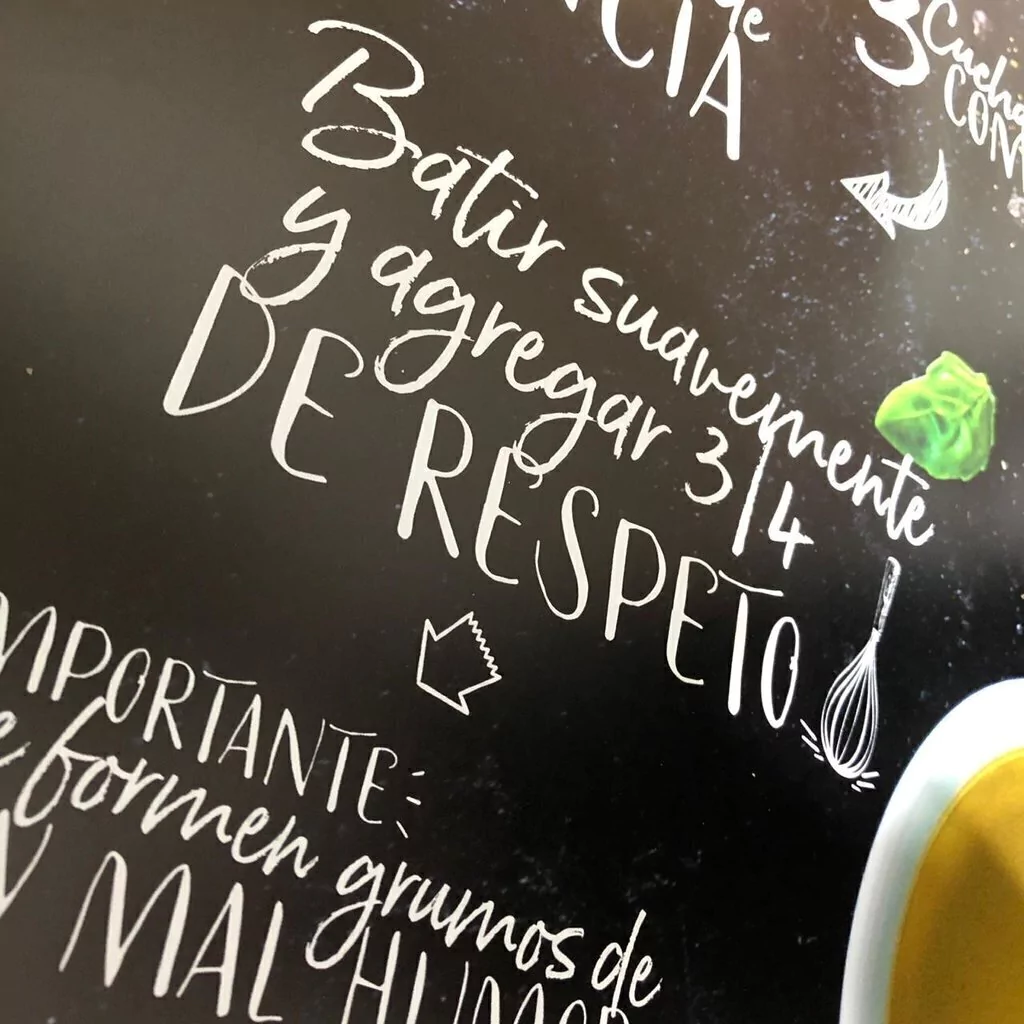 de
CIA
3
Batir suavemente
y agregar 3/4
DE RESPETO
MPORTANTE:
e formen grumos de
Y MAL HUMOR